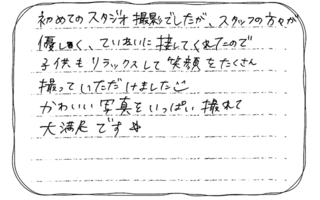 初めてのスタジオ撮影でしたが、スタッフの方々が
優しく、ていねいに接してくれたので
子供もリラックスして笑顔をたくさん
撮っていただけました
かわいい写真をいっぱい撮れて
大満足です